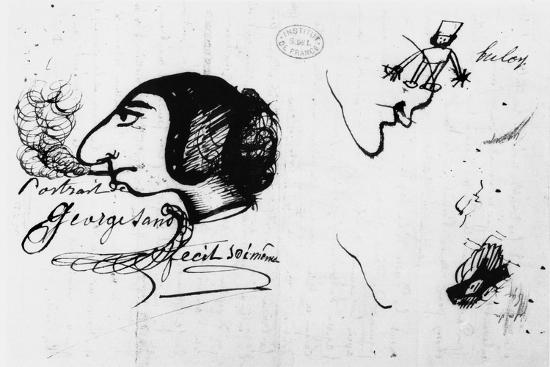 INSTITUT
DE FRANCE
Portrait de
George Sand
fecit soi même